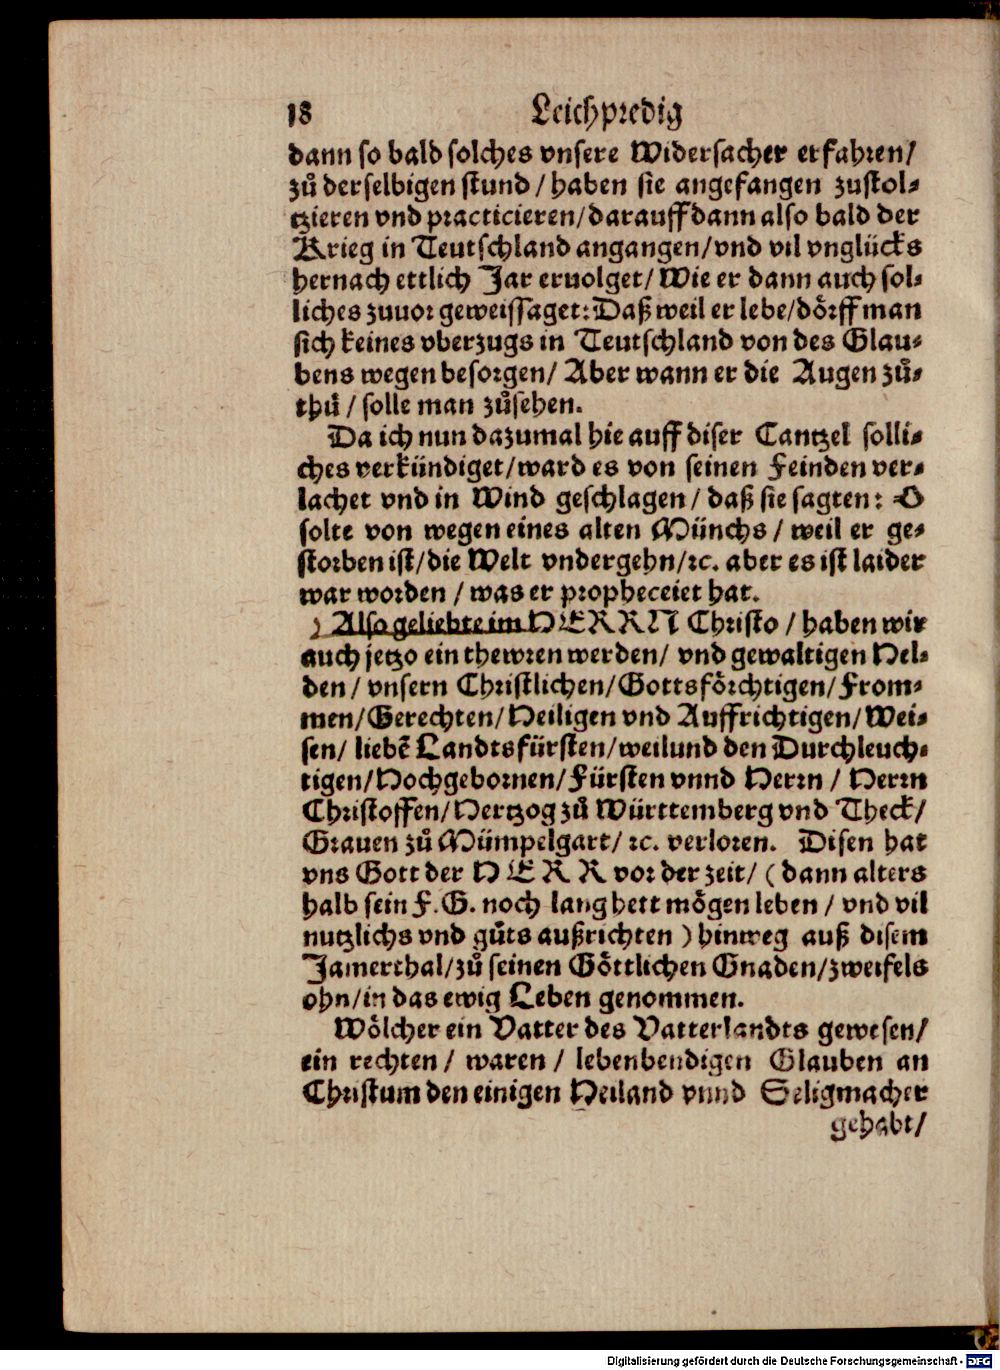 18 Leichpredig
dann so bald solches vnsere Widersacher erfahren/
zů derselbigen stund / haben sie angefangen zustol-
tzieren vnd practicieren/darauff dann also bald der
Krieg in Teutschland angangen/vnd vil vnglücks
hernach ettlich Jar eruolget/ Wie er dann auch sol-
liches zuuor geweissaget: Daß weil er lebe/dörff man
sich keines vberzugs in Teutschland von des Glau-
bens wegen besorgen/ Aber wann er die Augen zů-
thů / solle man zůsehen.
Da ich nun dazumal hie auff diser Cantzel solli-
ches verkündiget/ward es von seinen Feinden ver-
lachet vnd in Wind geschlagen / daß sie sagten: O
solte von wegen eines alten Münchs / weil er ge-
storben ist/die Welt vndergehn/ꝛc. aber es ist laider
war worden / was er propheceiet hat.
) Also geliebte im HERRN Christo / haben wir
auch jetzo ein thewren werden/ vnd gewaltigen Hel-
den / vnsern Christlichen/Gottsförchtigen/From-
men/Gerechten/Heiligen vnd Auffrichtigen/Wei-
sen/ liebē Landtsfürsten/weilund den Durchleuch-
tigen/Hochgebornen/Fürsten vnnd Herrn / Herrn
Christoffen/Hertzog zů Württemberg vnd Theck/
Grauen zů Mümpelgart/ ꝛc. verloren. Disen hat
vns Gott der HERR vor der zeit/ (dann alters
halb sein F.G. noch lang hett mögen leben / vnd vil
nutzlichs vnd gůts außrichten ) hinweg auß disem
Jamerthal/zů seinen Göttlichen Gnaden/zweifels
ohn/in das ewig Leben genommen.
Wölcher ein Vatter des Vatterlandts gewesen/
ein rechten / waren / lebenbendigen Glauben an
Christum den einigen Heiland vnnd Seligmacher
gehabt/
Digitalisierung gefördert durch die Deutsche Forschungsgemeinschaft - DFG